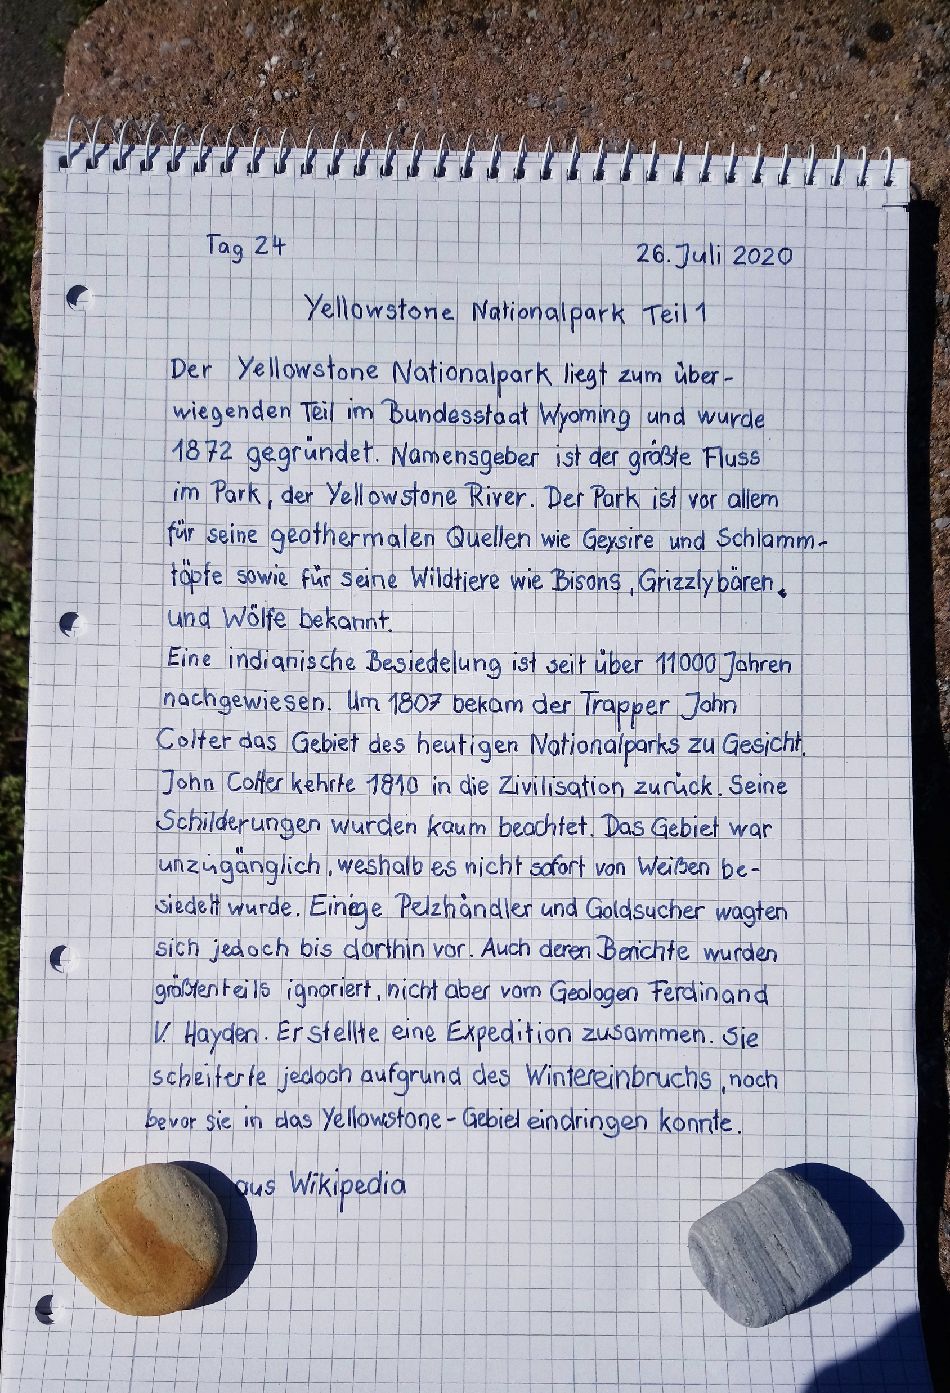 Tag 24
26. Juli 2020
Yellowstone Nationalpark Teil 1
Der Yellowstone Nationalpark liegt zum über-
wiegenden Teil im Bundesstaat Wyoming und wurde
1872 gegründet. Namensgeber ist der größte Fluss
im Park, der Yellowstone River. Der Park ist vor allem
für seine geothermalen Quellen wie Geysire und Schlamm-
töpfe sowie für seine Wildtiere wie Bisons, Grizzlybären,
und Wölfe bekannt.
Eine indianische Besiedelung ist seit über 11000 Jahren
nachgewiesen. Um 1807 bekam der Trapper John
Colter das Gebiet des heutigen Nationalparks zu Gesicht.
John Colter kehrte 1810 in die Zivilisation zurück. Seine
Schilderungen wurden kaum beachtet. Das Gebiet war
unzugänglich, weshalb es nicht sofort von Weißen be-
siedelt wurde. Einige Pelzhändler und Goldsucher wagten
sich jedoch bis dorthin vor. Auch deren Berichte wurden
größtenteils ignoriert, nicht aber vom Geologen Ferdinand
V. Hayden. Er stellte eine Expedition zusammen. Sie
scheiterte jedoch aufgrund des Wintereinbruchs, noch
bevor sie in das Yellowstone-Gebiet eindringen konnte.
aus Wikipedia